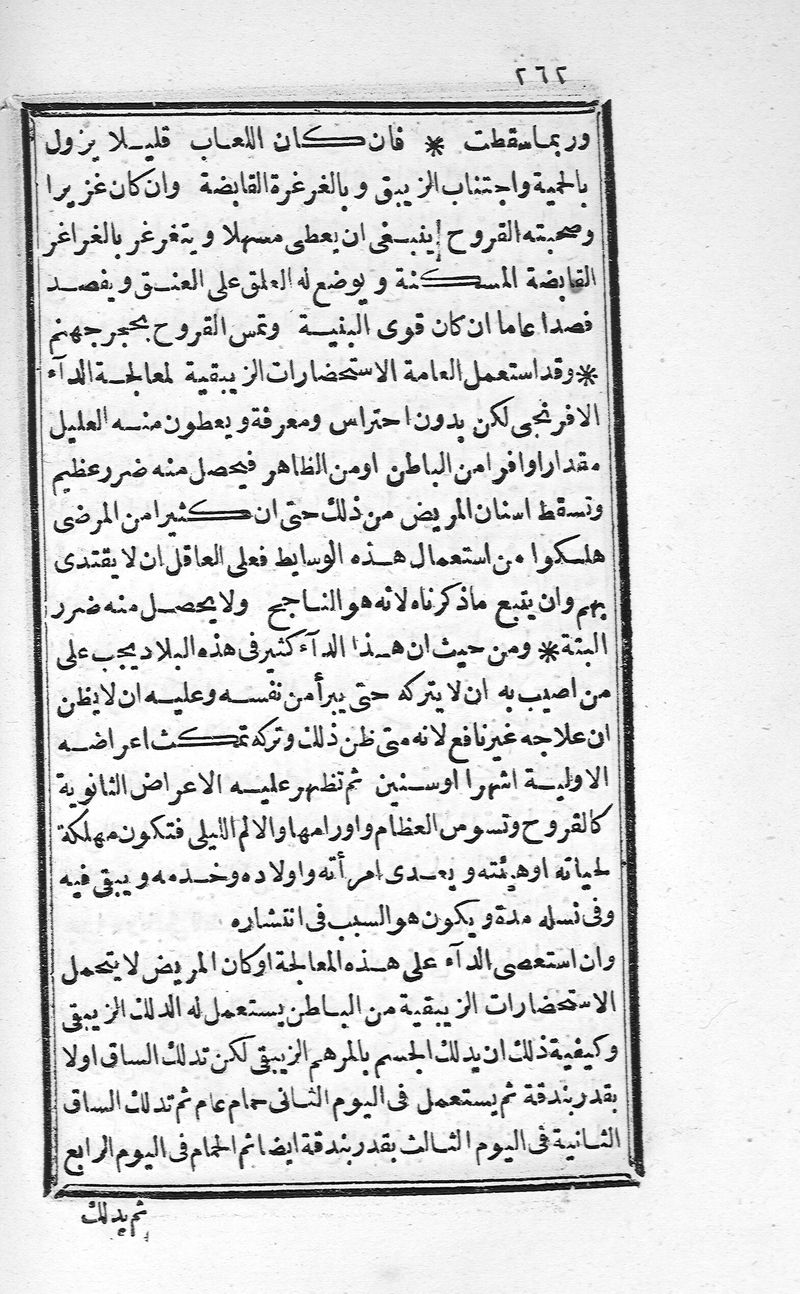 ٢٦٢
وربما سقطت * فان كان اللعاب قليلا يزول
بالحمية واجتناب الزيبق وبالغرغرة القابضة وان كان غزيرا
وصحبته القروح ينبغى ان يعطى مسهلا ويتغرغر بالغراغر
القابضة المسكنة ويوضع له العلق على العنق ويفصد
فصدا عاما ان كان قوى البنية وتمس القروح بحجر جهنم
* وقد استعمل العامة الاستحضارات الزيبقية لمعالجة الدآء
الافرنجى لكن بدون احتراس ومعرفة ويعطون منه العليل
مقدارا وافرا من الباطن او من الظاهر فيحصل منه ضرر عظيم
وتسقط اسنان المريض من ذلك حتى ان كثيرا من المرضى
هلكوا من استعمال هذه الوسايط فعلى العاقل ان لا يقتدى
بهم وان يتبع ما ذكرناه لانه هو الناجح ولا يحصل منه ضرر
البتة * ومن حيث ان هذا الدآء كثير فى هذه البلاد يجب على
من اصيب به ان لا يتركه حتى يبرأ من نفسه وعليه ان لا يظن
ان علاجه غير نافع لانه متى ظن ذلك وتركه تمكث اعراضه
الاولية اشهرا او سنين ثم تظهر عليه الاعراض الثانوية
كالقروح وتسوس العظام واورامها والالم الليلى فتكون مهلكة
لحياته او هيئته ويعدى امرأته واولاده وخدمه ويبقى فيه
وفى نسله مدة ويكون هو السبب فى انتشاره
وان استعصى الدآء على هذه المعالجة او كان المريض لا يتحمل
الاستحضارات الزيبقية من الباطن يستعمل له الدلك الزيبقى
وكيفية ذلك ان يدلك الجسم بالمرهم الزيبقى لكن تدلك الساق اولا
بقدر بندقة ثم يستعمل فى اليوم الثانى حمام عام ثم تدلك الساق
الثانية فى اليوم الثالث بقدر بندقة ايضا ثم الحمام فى اليوم الرابع
ثم يدلك